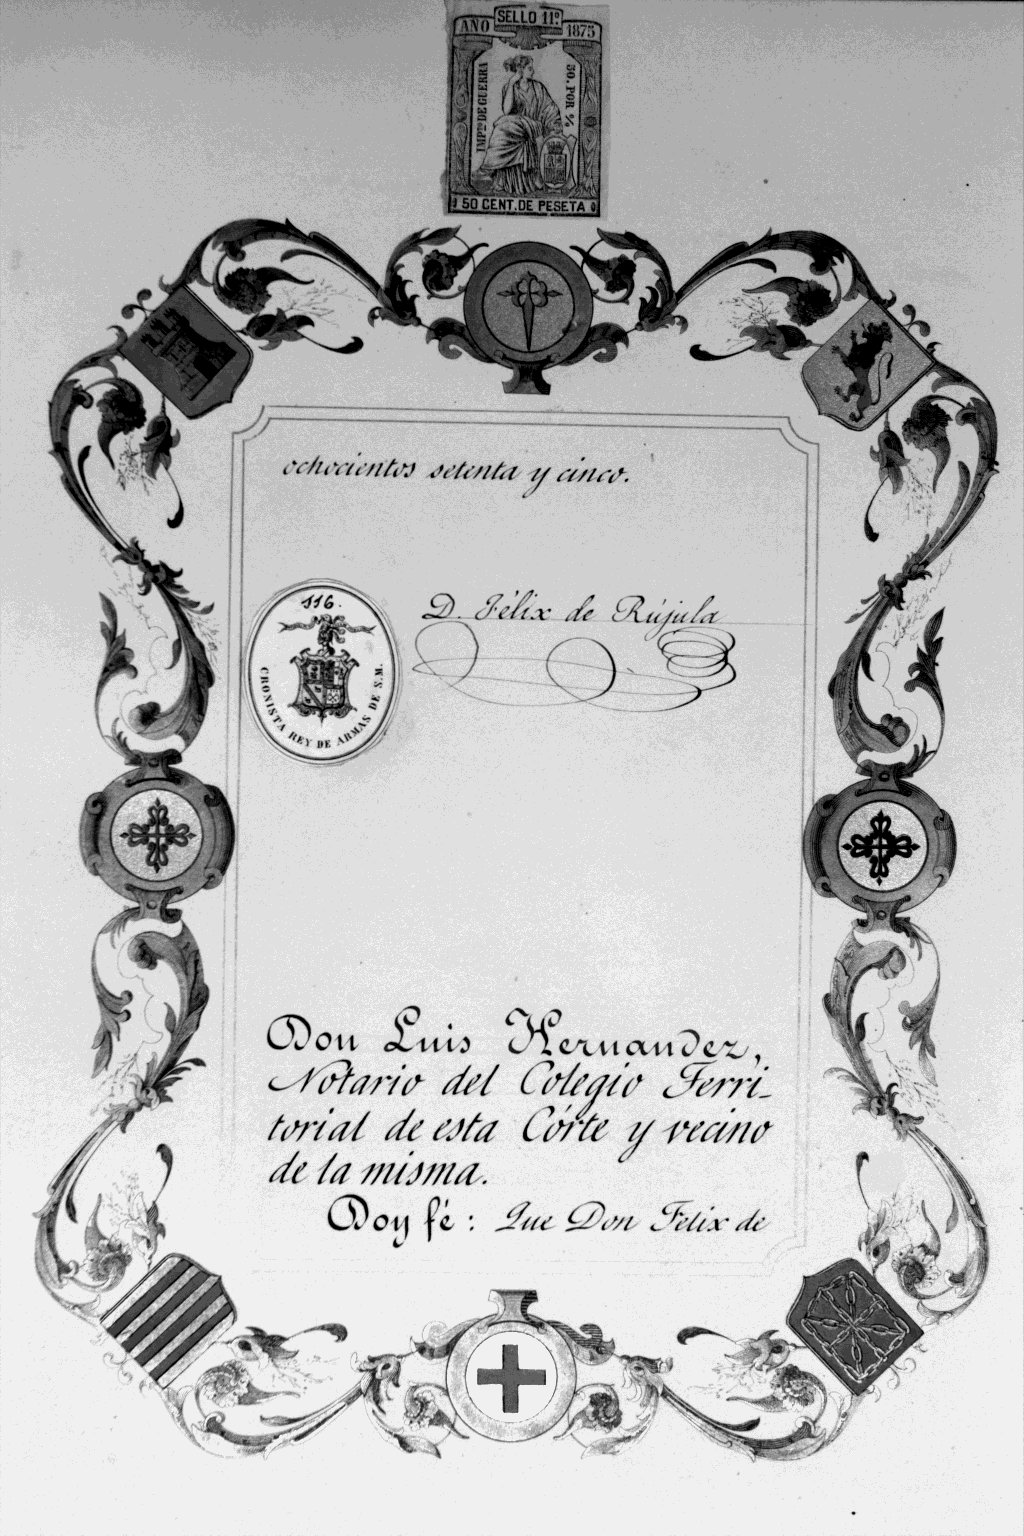 SELLO 11º
AÑO 1875
IMPTO DE GUERRA
50. POR %
50 CENT. DE PESETA
ochocientos setenta y cinco.
116.
CRONISTA REY DE ARMAS DE S.M.
D. Félix de Rújula
Don Luis Hernandez,
Notario del Colegio Terri-
torial de esta Córte y vecino
de la misma.
Doy fé: Que Don Felix de